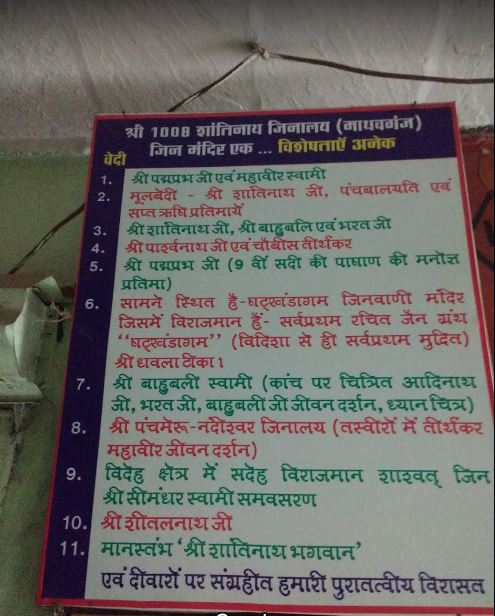 श्री 1008 शांतिनाथ जिनालय (माधवगंज)
जिन मंदिर एक ... विशेषताएँ अनेक
वेदी
1. श्री पद्मप्रभ जी एवं महावीर स्वामी
2. मूलबेदी - श्री शांतिनाथ जी, पंचबालयति एवं
सप्त ऋषि प्रतिमायें
3. श्री शांतिनाथ जी, श्री बाहुबलि एवं भरत जी
4. श्री पार्श्वनाथ जी एवं चौबीस तीर्थंकर
5. श्री पद्मप्रभ जी (9 वीं सदी की पाषाण की मनोज्ञ
प्रतिमा)
6. सामने स्थित है-षट्खंडागम जिनवाणी मंदिर
जिसमें विराजमान हैं- सर्वप्रथम रचित जैन ग्रंथ
‘‘षट्खंडागम’’ (विदिशा से ही सर्वप्रथम मुद्रित)
श्री धवला टीका।
7. श्री बाहुबली स्वामी (कांच पर चित्रित आदिनाथ
जी, भरत जी, बाहुबली जी जीवन दर्शन, ध्यान चित्र)
8. श्री पंचमेरू-नंदीश्वर जिनालय (तस्वीरों में तीर्थंकर
महावीर जीवन दर्शन)
9. विदेह क्षेत्र में सदेह विराजमान शाश्वत् जिन
श्री सीमंधर स्वामी समवसरण
10. श्री शीतलनाथ जी
11. मानस्तंभ ‘श्री शांतिनाथ भगवान’
एवं दीवारों पर संग्रहीत हमारी पुरातत्वीय विरासत